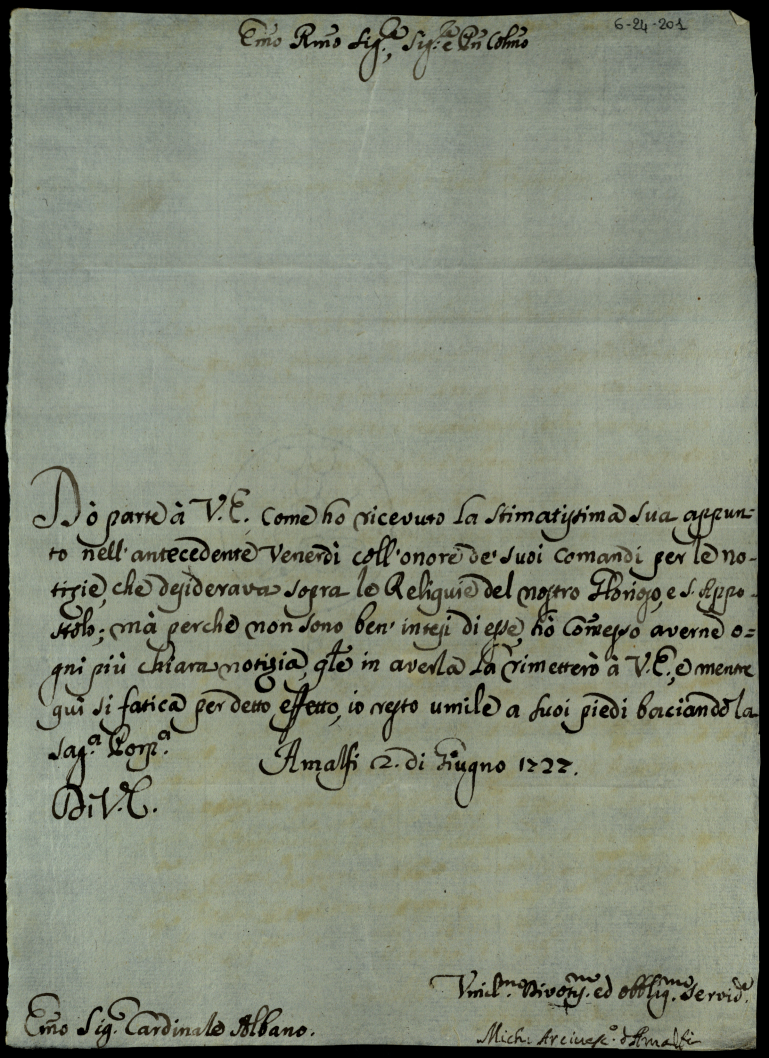 6-24-201
Emo Rmo Sig.r, Sig.r e Pn Colmo
Dò parte à V.E. come ho ricevuto la stimatissima sua appun=
to nell'antecedente Venerdì coll'onore de' suoi comandi per le no-
tizie, che desiderava sopra le Reliquie del nostro Glorioso, e S. Appo-
stolo; mà perche non sono ben' intesi di esse, hò Comesso averne o=
gni più chiara notizia, qle in averla la rimetterò à V.E., e mentre
qui si fatica per detto effetto, io resto umile a suoi piedi baciando la
sag.a Porp.a
Amalfi 2. di Giugno 1722.
Di V.E.
Vmil.mo Divotis.mo ed obblig.mo Servid.e
Emo Sig. Cardinale Albano.
Mich. Arcivesc.o d'Amalfi